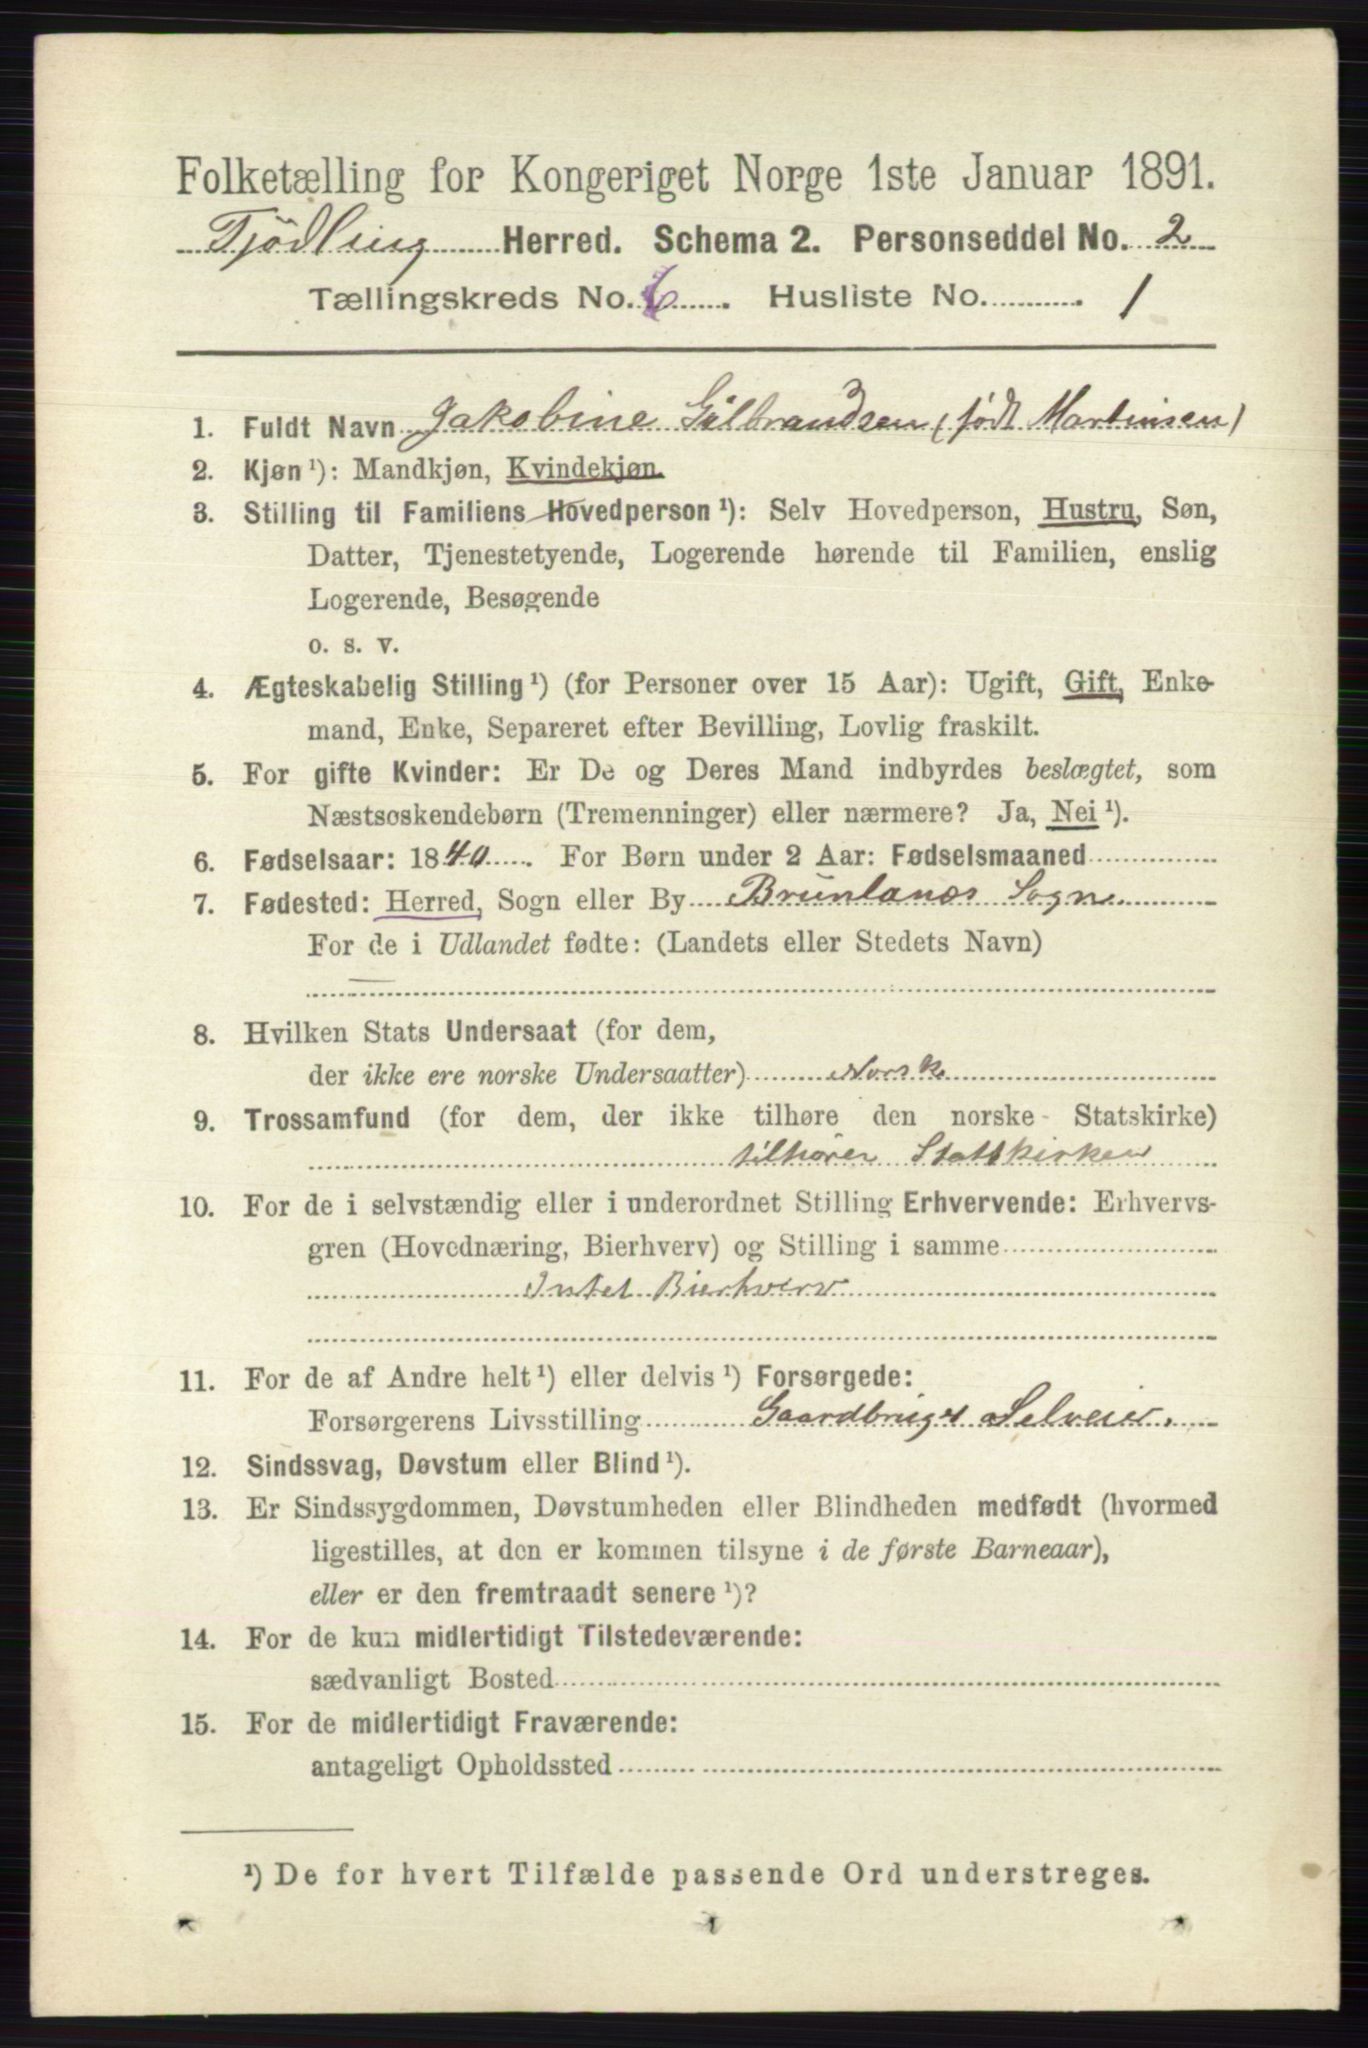 Folketælling for Kongeriget Norge 1ste Januar 1891.
Tjødling Herred. Schema 2. Personseddel No. 2
Tællingskreds No. 6. Husliste No. 1
1. Fuldt Navn Jakobine Gulbrandsen (født Martinsen)
2. Kjøn ¹): Mandkjøn, Kvindekjøn.
3. Stilling til Familiens Hovedperson ¹): Selv Hovedperson, Hustru, Søn,
Datter, Tjenestetyende, Logerende hørende til Familien, enslig
Logerende, Besøgende
o. s. v.
4. Ægteskabelig Stilling ¹) (for Personer over 15 Aar): Ugift, Gift, Enke-
mand, Enke, Separeret efter Bevilling, Lovlig fraskilt.
5. For gifte Kvinder: Er De og Deres Mand indbyrdes beslægtet, som
Næstsøskendebørn (Tremenninger) eller nærmere? Ja, Nei ¹).
6. Fødselsaar: 1840. For Børn under 2 Aar: Fødselsmaaned
7. Fødested: Herred, Sogn eller By Brunlanæs Sogn.
For de i Udlandet fødte: (Landets eller Stedets Navn)
8. Hvilken Stats Undersaat (for dem,
der ikke ere norske Undersaatter) Norsk
9. Trossamfund (for dem, der ikke tilhøre den norske Statskirke)
tilhører Statskirken
10. For de i selvstændig eller i underordnet Stilling Erhvervende: Erhvervs-
gren (Hovednæring, Bierhverv) og Stilling i samme
Intet Bierhverv
11. For de af Andre helt ¹) eller delvis ¹) Forsørgede:
Forsørgerens Livsstilling Gaardbruger Selveier.
12. Sindssvag, Døvstum eller Blind ¹).
13. Er Sindssygdommen, Døvstumheden eller Blindheden medfødt (hvormed
ligestilles, at den er kommen tilsyne i de første Barneaar),
eller er den fremtraadt senere ¹)?
14. For de kun midlertidigt Tilstedeværende:
sædvanligt Bosted
15. For de midlertidigt Fraværende:
antageligt Opholdssted
¹) De for hvert Tilfælde passende Ord understreges.